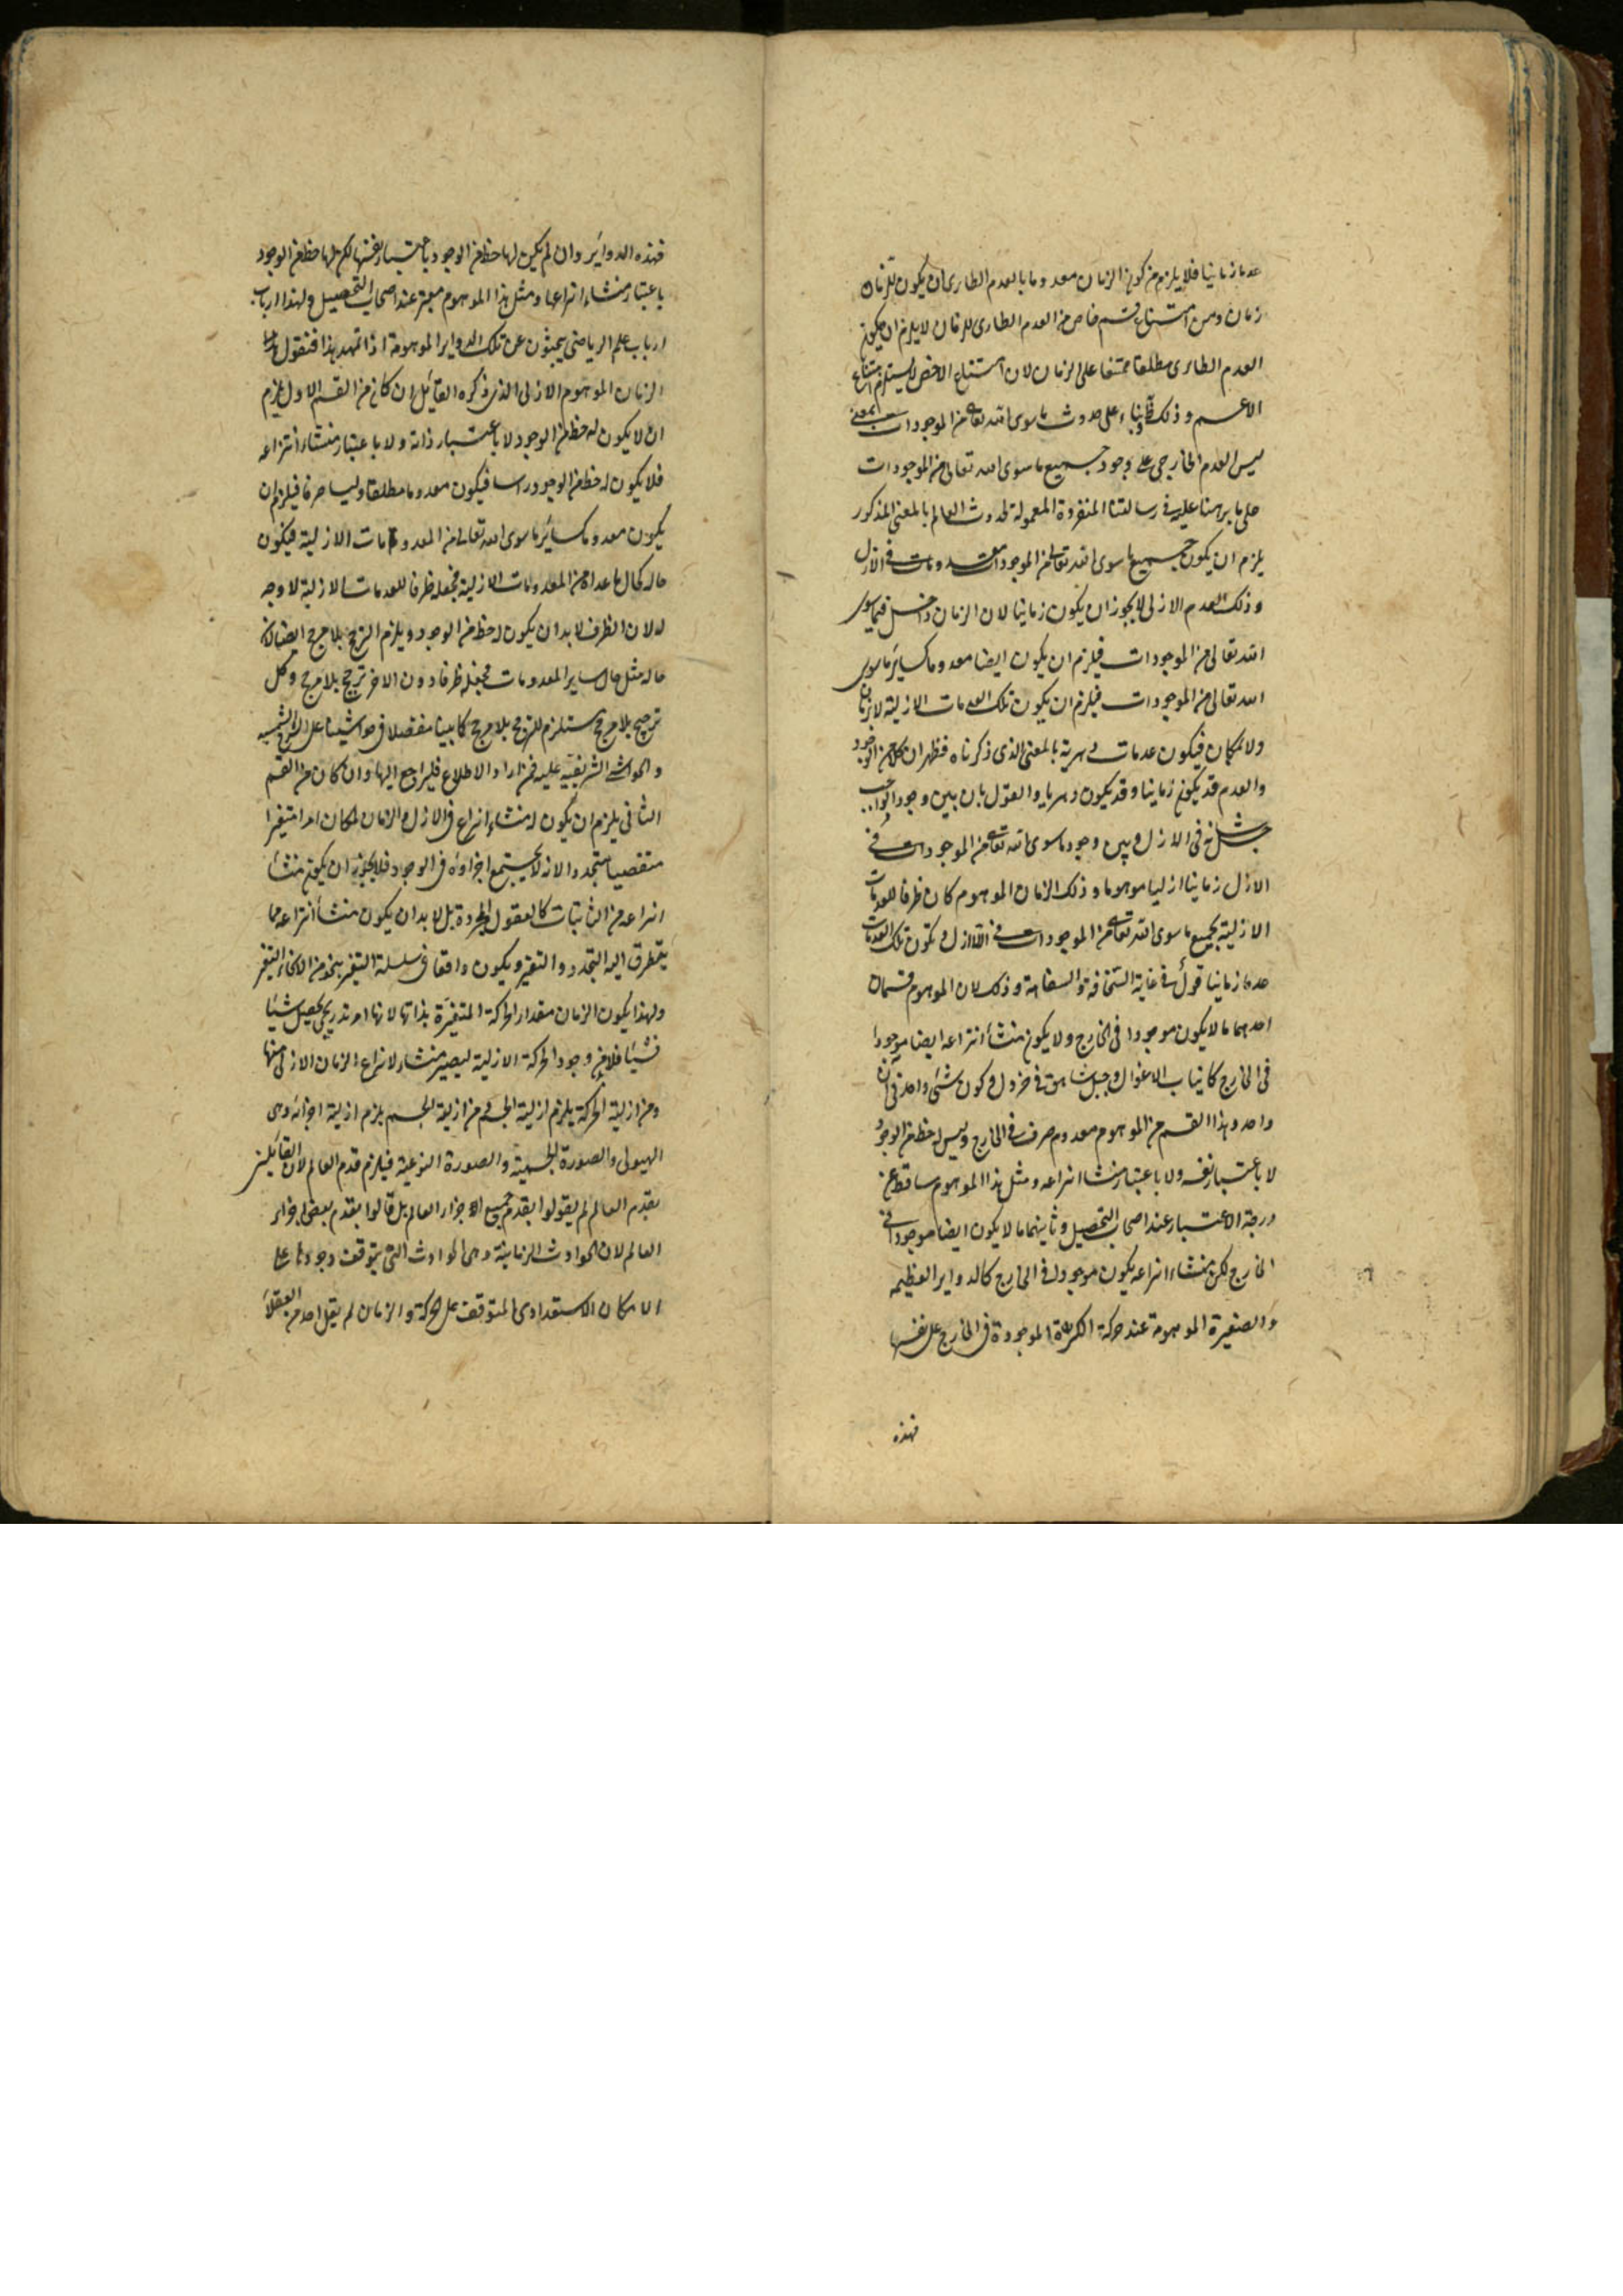 عدما زمانيا فلا يلزم من كون الزمان معدوما بالعدم الطارى ان يكون للزمان
زمان ومن امتناع قسم خاص من العدم الطارى للزمان لا يلزم ان يكون
العدم الطارى مطلقا ممتنعا على الزمان لان امتناع الاخص لا يستلزم امتناع
الاعم وذلك بناء على حدوث ما سوى الله تعالى من الموجودات بمعنى
ليس العدم الخارجى على وجود جميع ما سوى الله تعالى من الموجودات
على ما برهنا عليه فى رسالتنا المنفردة المعمولة لحدوث العالم بالمعنى المذكور
يلزم ان يكون جميع ما سوى الله تعالى من الموجودات معدومات فى الازل
وذلك العدم الازلى لا يجوز ان يكون زمانيا لان الزمان داخل فيما سوى
الله تعالى من الموجودات فيلزم ان يكون ايضا معدوما كسائر ما سوى
الله تعالى من الموجودات فيلزم ان يكون تلك العدمات الازلية لا زمان
ولا مكان فيكون عدمات دهرية بالمعنى الذى ذكرناه فظهر ان كلا من الوجود
والعدم قد يكون زمانيا وقد يكون دهريا والقول بان بين وجود الواجب
جل شانه فى الازل وبين وجود ما سوى الله تعالى من الموجودات فى
الازل زمانيا ازليا موهوما وذلك الزمان الموهوم كان ظرفا للعدمات
الازلية لجميع ما سوى الله تعالى من الموجودات فى الازل فتكون تلك العدمات
عدما زمانيا قول فى غاية السخافة والسقامة وذلك لان الموهوم قسمان
احدهما ما لا يكون موجودا فى الخارج ولا يكون منشأ انتزاعه ايضا موجودا
فى الخارج كانياب الاغوال وجبل شاهق فى خردل وكون شئ واحد فى آن
واحد وهذا القسم من الموهوم معدوم صرف فى الخارج وليس له حظ من الوجود
لا باعتبار نفسه ولا باعتبار منشا انتزاعه ومثل هذا الموهوم ساقط عن
درجة الاعتبار عند اصحاب التحصيل وثانيهما ما لا يكون ايضا موجودا فى
الخارج لكن منشاء انتزاعه يكون موجودا فى الخارج كالدواير العظيمه
والصغيرة الموهومة عند حركة الكرة الموجودة فى الخارج على نفسها
فهذه
فهذه الدوائر وان لم يكن لها حظ من الوجود باعتبار نفسها لكن لها حظ من الوجود
باعتبار منشاء انتزاعها ومثل هذا الموهوم معتبر عند اصحاب التحصيل ولهذا ارباب
ارباب علم الرياضى يبحثون عن تلك الدواير الموهومة اذا تمهد هذا فنقول
الزمان الموهوم الازلى الذى ذكره القائل ان كان من القسم الاول يلزم
ان لا يكون له حظ من الوجود لا باعتبار ذاته ولا باعتبار منشاء انتزاعه
فلا يكون له حظ من الوجود راسا فيكون معدوما مطلقا وليسا صرفا فيلزم ان
يكون معدوما كسائر ما سوى الله تعالى من المعدومات الازلية فيكون
حاله كحال ما عداه من المعدومات الازلية فجعله ظرفا للعدمات الازلية لا وجه
له لان الظرف لا بد ان يكون له حظ من الوجود ويلزم الترجيح بلا مرجح ايضا لان
حاله مثل حال ساير المعدومات فجعله ظرفا دون الاخر ترجيح بلا مرجح وكل
ترجيح بلا مرجح مستلزم للترجح بلا مرجح كما بينا مفصلا فى حواشينا على
والحواشى الشريفية عليه فمن اراد الاطلاع فليراجع اليها وان كان من القسم
الثانى يلزم ان يكون له منشاء انتزاع فى الازل والزمان لما كان امرا متغيرا
متقضيا متجددا لا يجتمع اجزاؤه فى الوجود فلا يجوز ان يكون منشأ
انتزاعه من الثابتات كالعقول المجردة بل لا بد ان يكون منشأ انتزاعه مما
يتطرق اليه التجدد والتغير ويكون واقعا فى سلسلة التغير بنحو من الانحاء التغير
ولهذا يكون الزمان مقدار الحركة المتغيرة بذاتها لانها امر تدريجى يحصل شيئا
فشيئا فلا وجود الحركة الازلية ليصير منشاء لانتزاع الزمان الازلى منها
ومن ازلية الحركة يلزم ازلية الجسم ومن ازلية الجسم يلزم ازلية اجزائه وهى
الهيولى والصورة الجسمية والصورة النوعية فيلزم قدم العالم لان القائلين
بقدم العالم لم يقولوا بقدم جميع اجزاء العالم بل قالوا بقدم بعض اجزاء
العالم لان الحوادث الزمانية وهى الحوادث التى يتوقف وجودها على
الامكان الاستعدادى المتوقف على الحركة والزمان لم يقل احد من العقلاء